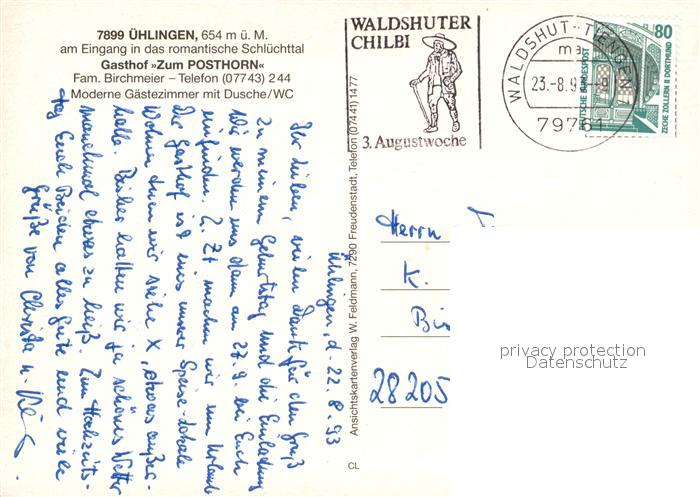 7899 ÜHLINGEN, 654 m ü. M.
am Eingang in das romantische Schlüchttal
Gasthof »Zum POSTHORN«
Fam. Birchmeier – Telefon (07743) 244
Moderne Gästezimmer mit Dusche/WC
WALDSHUTER
CHILBI
3. Augustwoche
WALDSHUT-TIENGEN
ma
23.-8.93
79761
80
DEUTSCHE BUNDESPOST
ZECHE ZOLLERN II DORTMUND
Ühlingen, d. 22.8.93
Ihr Lieben, vielen Dank für den Gruß
zu meinem Geburtstag und die Einladung
Wir werden uns dann am 27.9. bei Euch
einfinden. Z. Zt machen wir nun Urlaub
Der Gasthof ist uns unser Speise-lokale
Wohnen tun wir siehe X, etwas außer-
halb. Bisher hatten wir ja schönes Wetter
manchmal etwas zu heiß. Zum Hochzeits-
tag Euch Beiden alles Gute und viele
Grüße von Christa u.
Ansichtskartenverlag W. Feldmann, 7290 Freudenstadt, Telefon (07441) 1477
CL
Herrn
K.
Bis
28205
privacy protection
Datenschutz